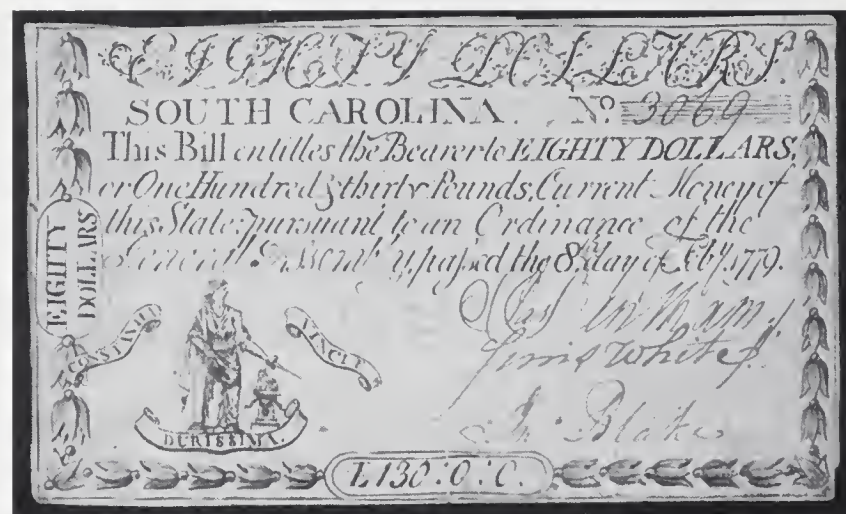 EIGHTY DOLLARS.
SOUTH CAROLINA. No. 3069
This Bill entitles the Bearer to EIGHTY DOLLARS,
or One Hundred & thirty Pounds, Current Money of
this State, pursuant to an Ordinance of the
General Assembly, passed the 8. day of Feby. 1779.
EIGHTY
DOLLARS
CONSTANTIA
VINCIT
White
Blake
DURISSIMA.
L130:0:0.